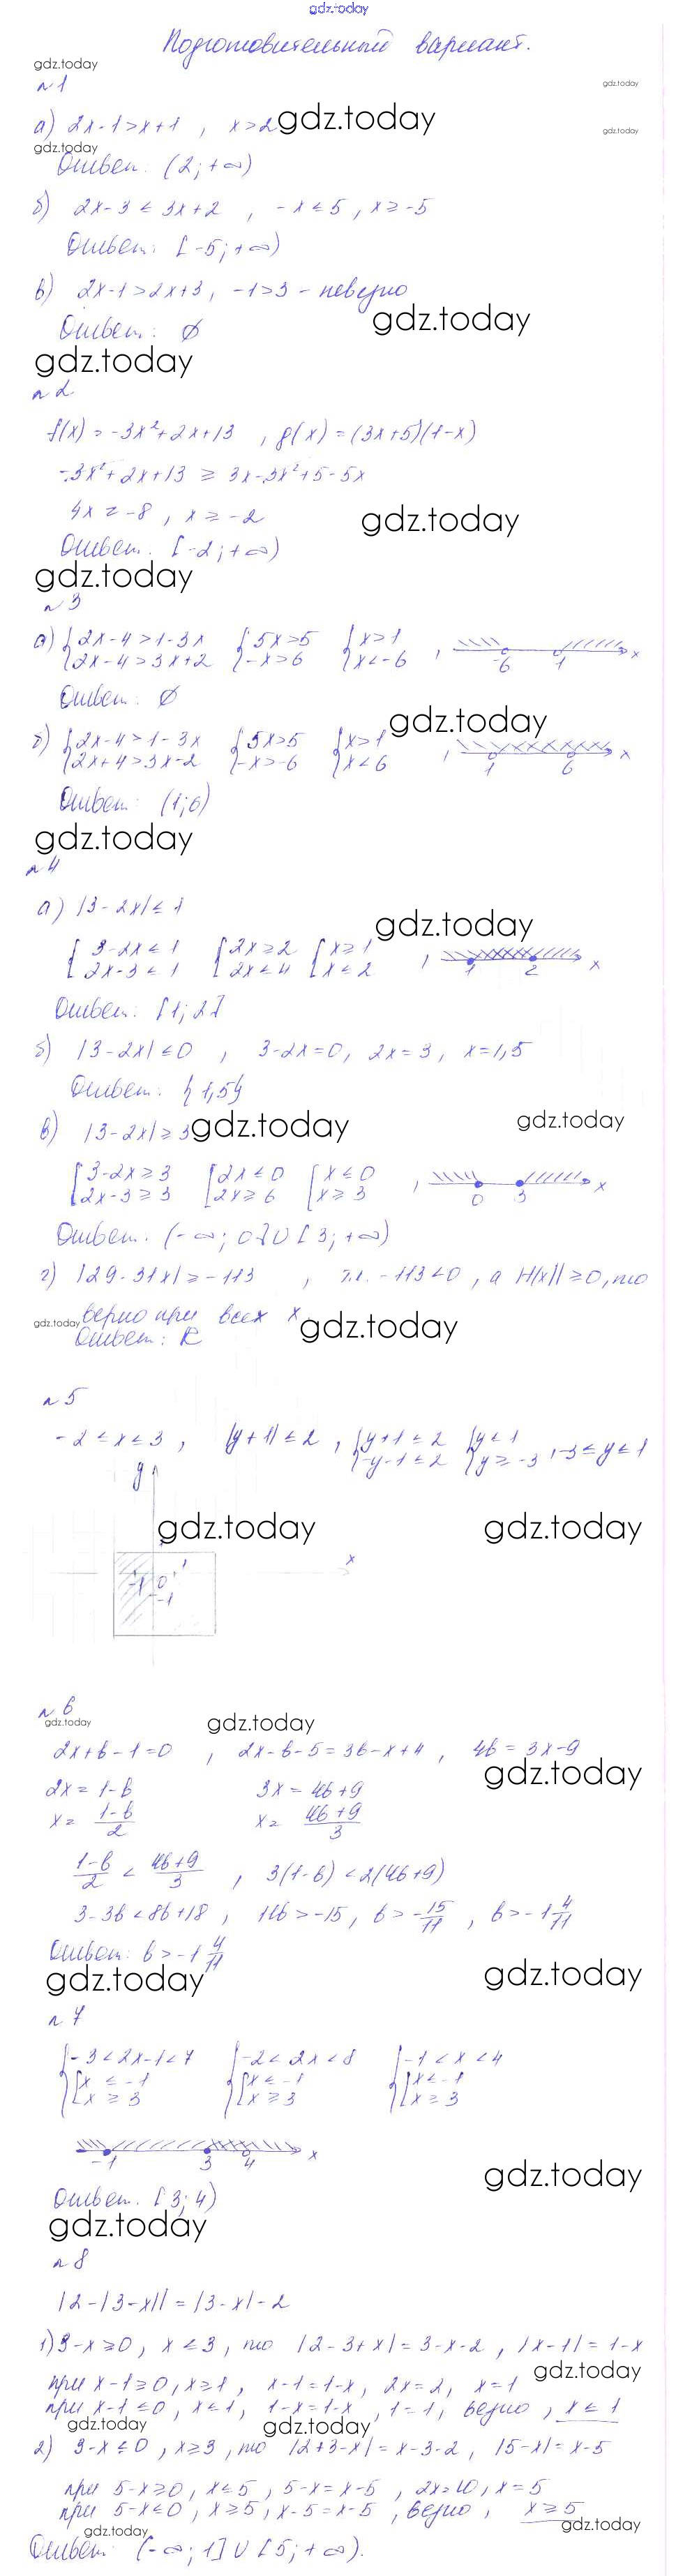 gdz.today
Подготовительный вариант.
gdz.today
№1
gdz.today
а) 2x-1>x+1 , x>2
gdz.today
gdz.today
gdz.today
Ответ: (2;+∞)
б) 2x-3 ≤ 3x+2 , -x ≤ 5 , x ≥ -5
Ответ: [-5;+∞)
в) 2x-1>2x+3, -1>3 - неверно
gdz.today
Ответ: ∅
gdz.today
№2
f(x) = -3x²+2x+13 , g(x) = (3x+5)(1-x)
-3x²+2x+13 ≥ 3x-3x²+5-5x
4x ≥ -8 , x ≥ -2
gdz.today
Ответ. [-2;+∞)
gdz.today
№3
а) {2x-4>1-3x {5x>5 {x>1
2x-4>3x+2 -x>6 x<-6 , -6 1 x
Ответ: ∅
gdz.today
б) {2x-4>1-3x {5x>5 {x>1
2x+4>3x-2 -x>-6 x<6 , 1 6 x
Ответ: (1;6)
gdz.today
№4
а) |3-2x| ≤ 1
gdz.today
{3-2x ≤ 1 {2x ≥ 2 {x ≥ 1
2x-3 ≤ 1 2x ≤ 4 x ≤ 2 , 1 2 x
Ответ: [1;2]
б) |3-2x| ≤ 0 , 3-2x=0, 2x=3, x=1,5
Ответ. {1,5}
в) |3-2x| ≥ 3
gdz.today
gdz.today
[3-2x ≥ 3 [2x ≤ 0 [x ≤ 0
2x-3 ≥ 3 2x ≥ 6 x ≥ 3 , 0 3 x
Ответ. (-∞;0]∪[3;+∞)
г) |29-31x| ≥ -113 , т.к. -113<0 , а |f(x)| ≥ 0, то
верно при всех x
gdz.today
gdz.today
Ответ: R
№5
-2 ≤ x ≤ 3 , |y+1| ≤ 2 , {y+1 ≤ 2 {y ≤ 1
-y-1 ≤ 2 y ≥ -3 , -3 ≤ y ≤ 1
y
gdz.today
gdz.today
1 x
-1 0
-1
№6
gdz.today
gdz.today
2x+b-1=0 , 2x-b-5=3b-x+4 , 4b=3x-9
gdz.today
2x=1-b 3x=4b+9
x= (1-b)/2 x= (4b+9)/3
(1-b)/2 < (4b+9)/3 , 3(1-b)<2(4b+9)
3-3b<8b+18 , 11b>-15, b>-15/11 , b>-1 4/11
Ответ: b>-1 4/11
gdz.today
gdz.today
№7
{-3<2x-1<7 {-2<2x<8 {-1<x<4
[x ≤ -1 [x ≤ -1 [x ≤ -1
x ≥ 3 x ≥ 3 x ≥ 3
-1 3 4 x
gdz.today
Ответ. [3;4)
gdz.today
№8
|2-|3-x|| = |3-x|-2
1) 3-x ≥ 0, x ≤ 3, то |2-3+x| = 3-x-2 , |x-1| = 1-x
gdz.today
при x-1 ≥ 0, x ≥ 1, x-1=1-x, 2x=2, x=1
при x-1 ≤ 0, x ≤ 1, 1-x=1-x , 1=1, верно , x ≤ 1
gdz.today
gdz.today
2) 3-x ≤ 0 , x ≥ 3 , то |2+3-x| = x-3-2 , |5-x| = x-5
при 5-x ≥ 0, x ≤ 5 , 5-x = x-5 , 2x=10, x=5
при 5-x ≤ 0, x ≥ 5, x-5=x-5 , верно , x ≥ 5
gdz.today
gdz.today
Ответ: (-∞;1]∪[5;+∞).